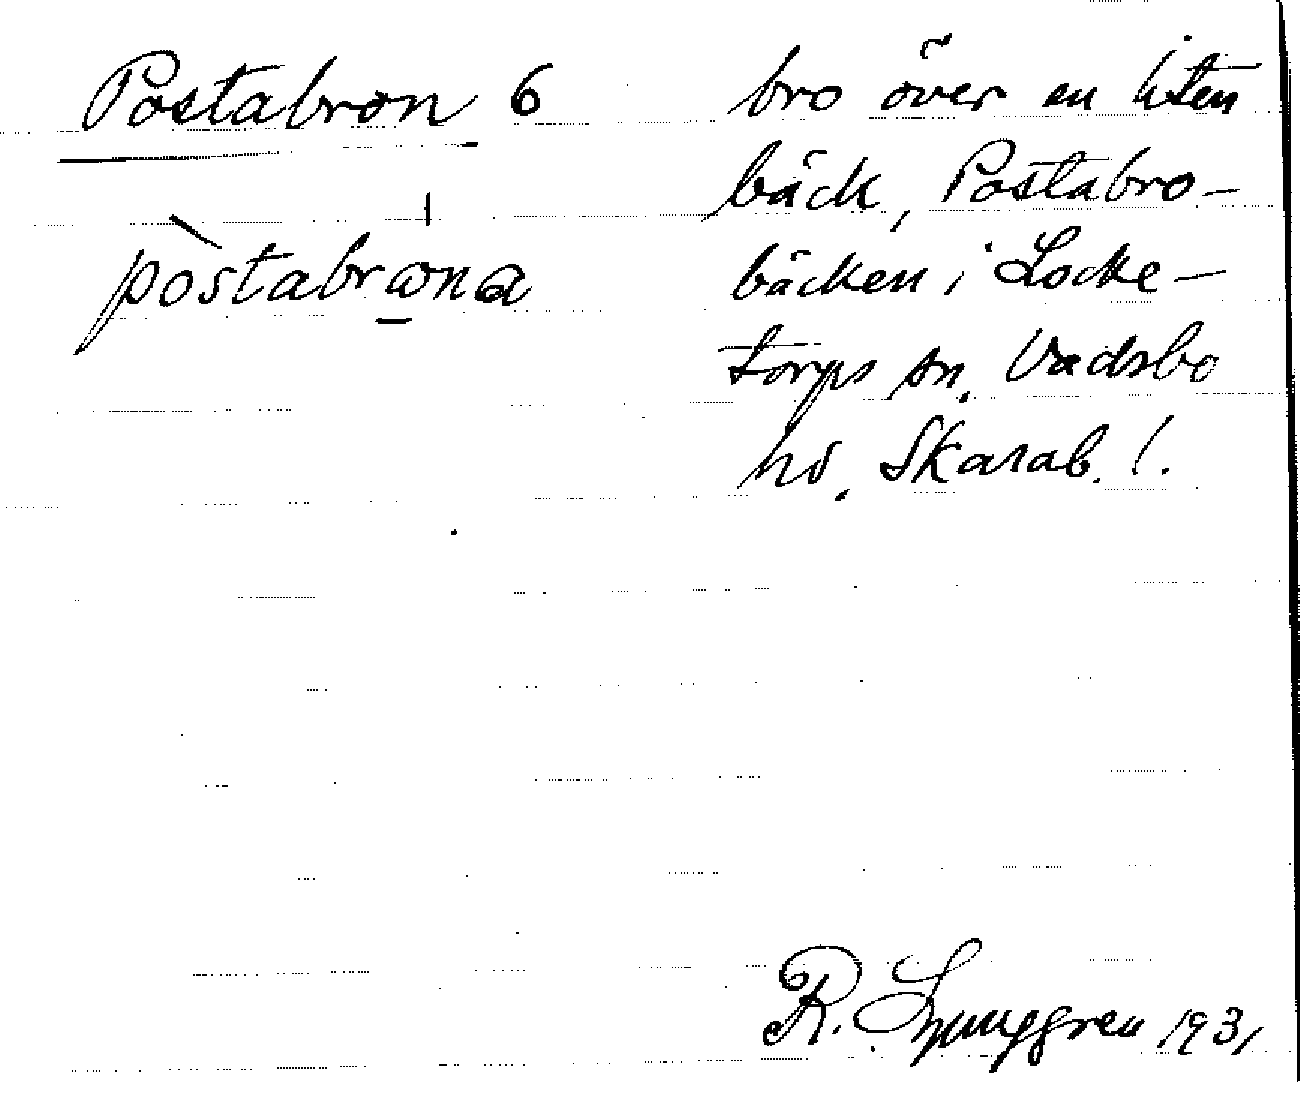 Postabron 6
pòstabrωna
bro över en liten
bäck, Postabro-
bäcken i Locke-
torps sn. Vadsbo
hd. Skarab. !.
R. Ljunggren 1931